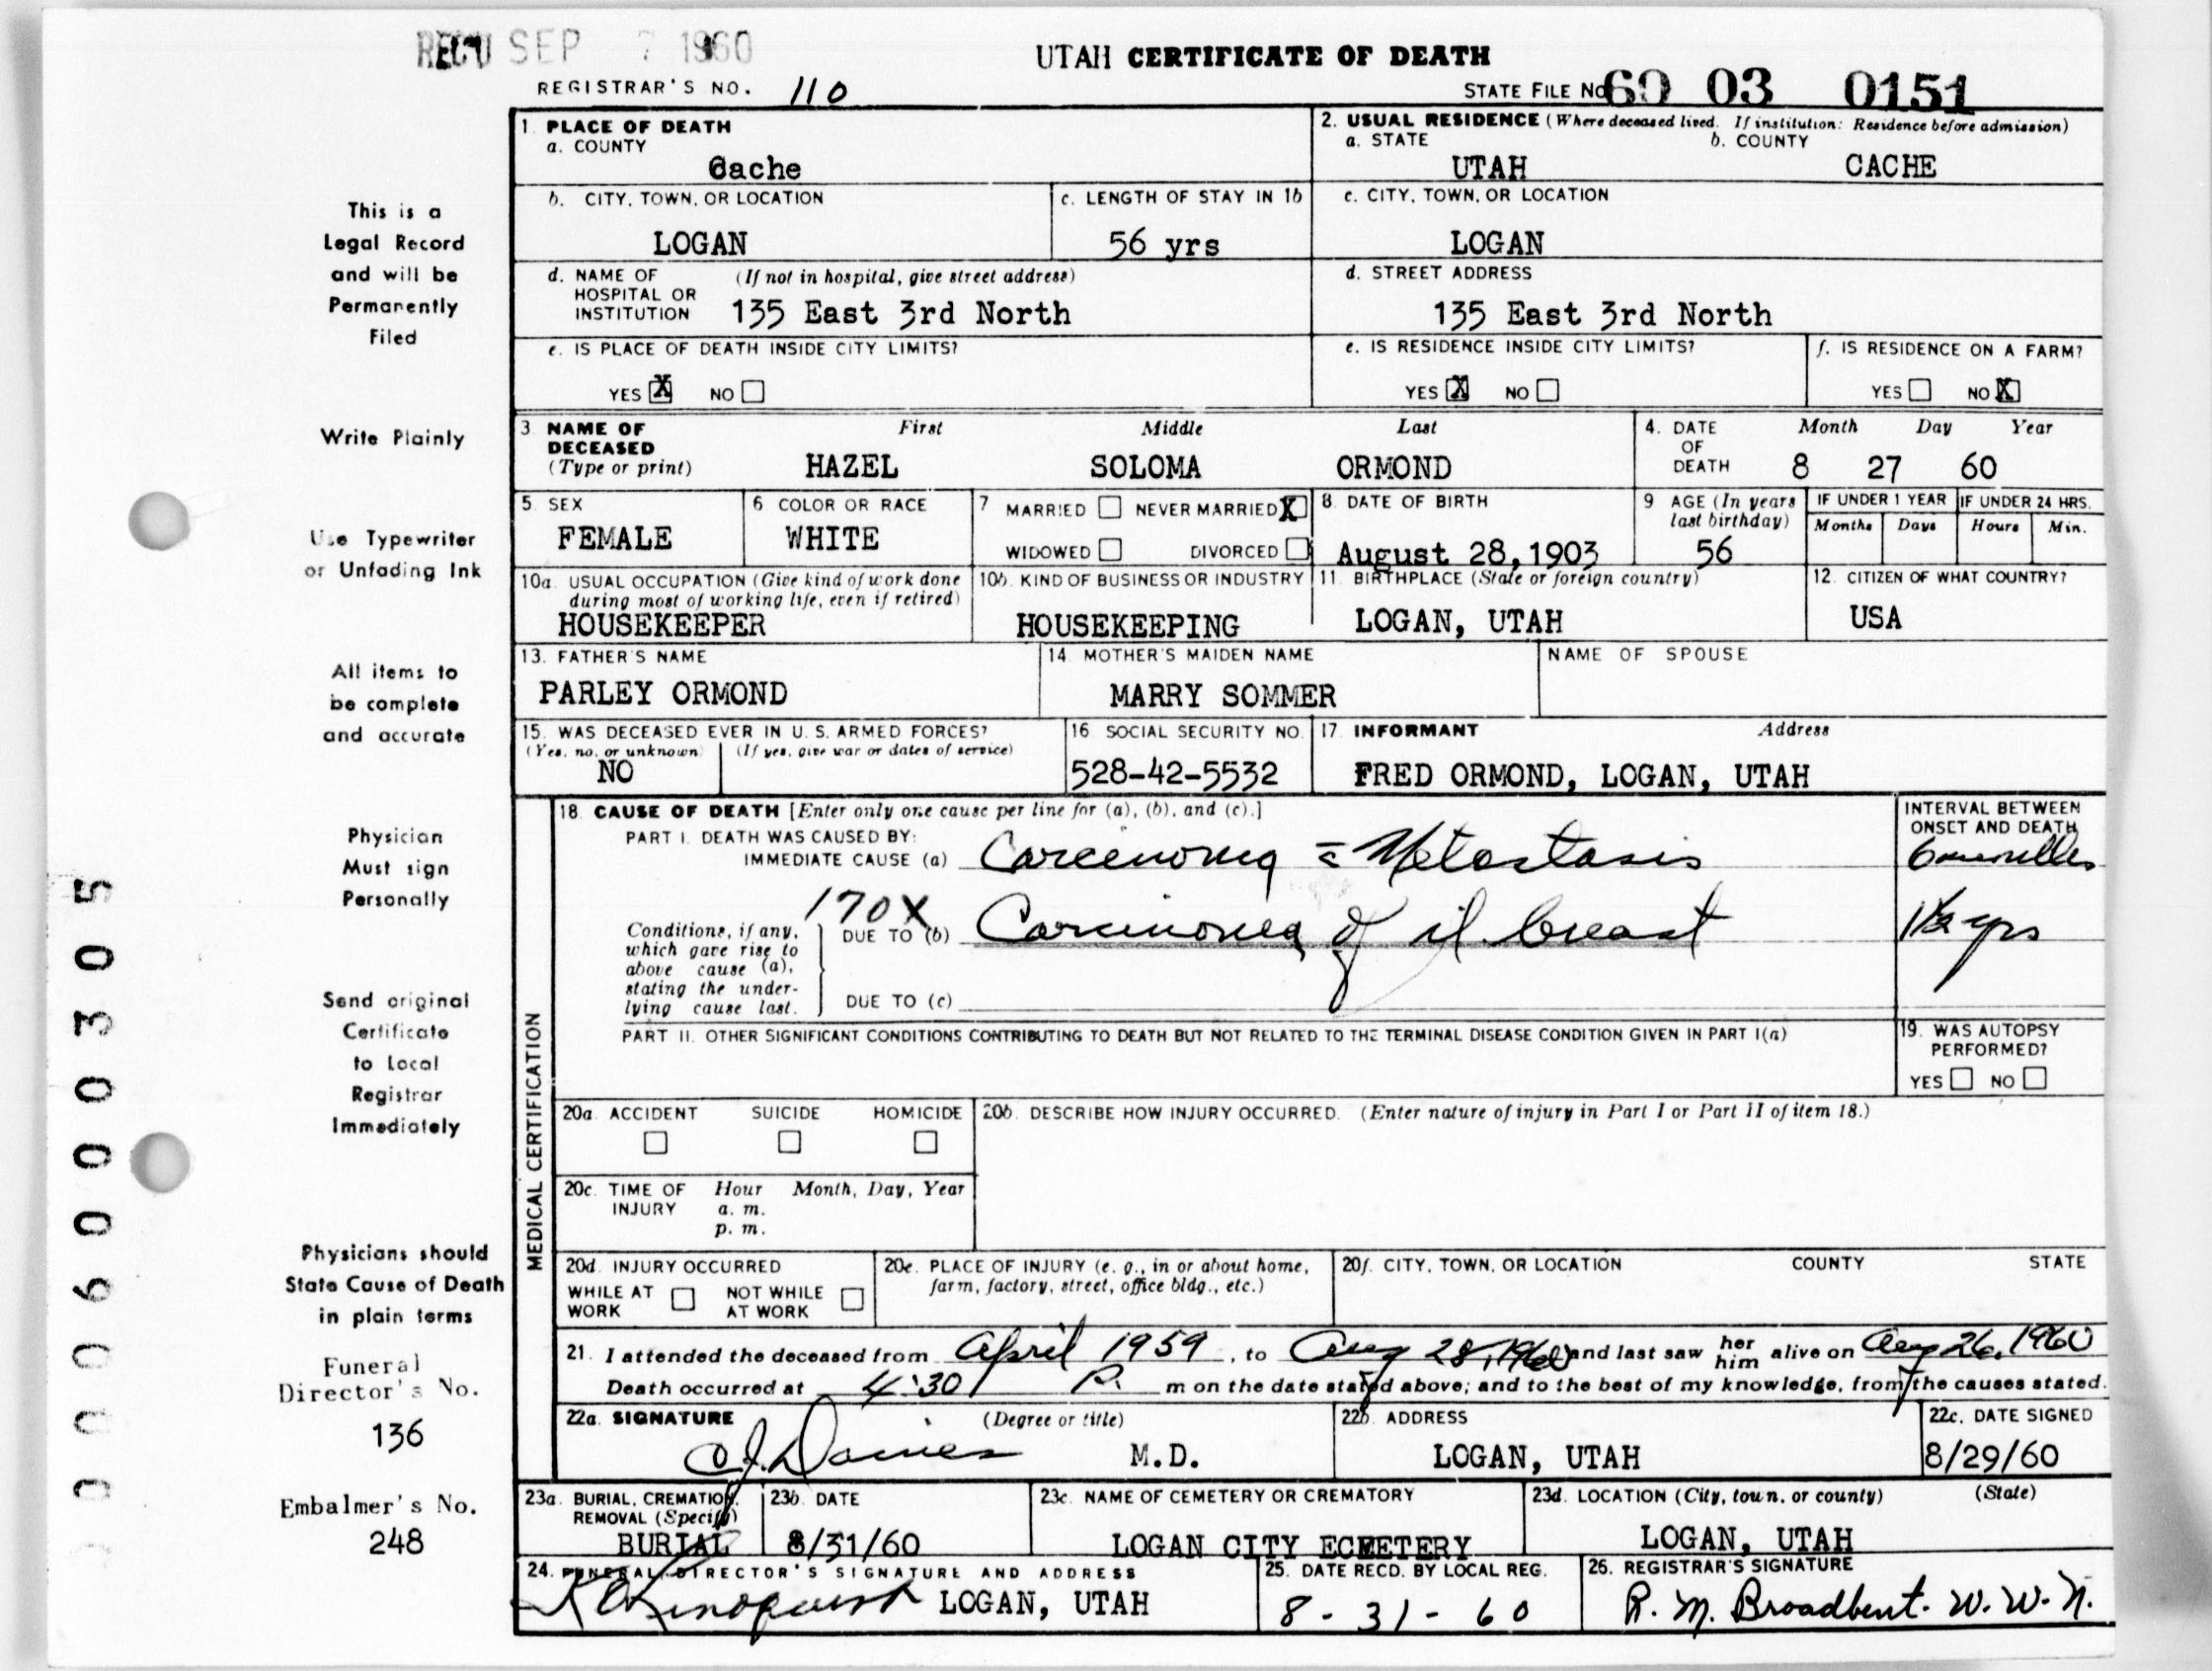 REC'D SEP 7 1960
UTAH CERTIFICATE OF DEATH
REGISTRAR'S NO. 110
STATE FILE No 60 03 0151
1. PLACE OF DEATH
a. COUNTY
Cache
2. USUAL RESIDENCE (Where deceased lived. If institution: Residence before admission)
a. STATE b. COUNTY
UTAH CACHE
b. CITY, TOWN, OR LOCATION
LOGAN
c. LENGTH OF STAY IN 1b
56 yrs
c. CITY, TOWN, OR LOCATION
LOGAN
d. NAME OF HOSPITAL OR INSTITUTION (If not in hospital, give street address)
135 East 3rd North
d. STREET ADDRESS
135 East 3rd North
e. IS PLACE OF DEATH INSIDE CITY LIMITS?
YES X NO
e. IS RESIDENCE INSIDE CITY LIMITS?
YES X NO
f. IS RESIDENCE ON A FARM?
YES NO X
3. NAME OF DECEASED (Type or print)
First Middle Last
HAZEL SOLOMA ORMOND
4. DATE OF DEATH
Month Day Year
8 27 60
5. SEX
FEMALE
6 COLOR OR RACE
WHITE
7 MARRIED NEVER MARRIED X
WIDOWED DIVORCED
8. DATE OF BIRTH
August 28,1903
9 AGE (In years last birthday)
56
IF UNDER 1 YEAR IF UNDER 24 HRS.
Months Days Hours Min.
10a. USUAL OCCUPATION (Give kind of work done during most of working life, even if retired)
HOUSEKEEPER
10b. KIND OF BUSINESS OR INDUSTRY
HOUSEKEEPING
11. BIRTHPLACE (State or foreign country)
LOGAN, UTAH
12. CITIZEN OF WHAT COUNTRY?
USA
13. FATHER'S NAME
PARLEY ORMOND
14. MOTHER'S MAIDEN NAME
MARRY SOMMER
NAME OF SPOUSE
15. WAS DECEASED EVER IN U. S. ARMED FORCES?
(Yes, no, or unknown) (If yes, give war or dates of service)
NO
16. SOCIAL SECURITY NO.
528-42-5532
17. INFORMANT Address
FRED ORMOND, LOGAN, UTAH
MEDICAL CERTIFICATION
18. CAUSE OF DEATH [Enter only one cause per line for (a), (b), and (c).]
PART I. DEATH WAS CAUSED BY:
IMMEDIATE CAUSE (a) Carcinoma Metastasis
INTERVAL BETWEEN ONSET AND DEATH
170X
Conditions, if any, which gave rise to above cause (a), stating the underlying cause last.
DUE TO (b) Carcinoma of breast
1 1/2 yrs
DUE TO (c)
PART II. OTHER SIGNIFICANT CONDITIONS CONTRIBUTING TO DEATH BUT NOT RELATED TO THE TERMINAL DISEASE CONDITION GIVEN IN PART I(a)
19. WAS AUTOPSY PERFORMED?
YES NO
20a. ACCIDENT SUICIDE HOMICIDE
20b. DESCRIBE HOW INJURY OCCURRED. (Enter nature of injury in Part I or Part II of item 18.)
20c. TIME OF INJURY Hour Month, Day, Year
a. m.
p. m.
20d. INJURY OCCURRED
WHILE AT WORK NOT WHILE AT WORK
20e. PLACE OF INJURY (e. g., in or about home, farm, factory, street, office bldg., etc.)
20f. CITY, TOWN, OR LOCATION COUNTY STATE
21. I attended the deceased from April 1959, to Aug 28, 1960 and last saw her him alive on Aug 26, 1960
Death occurred at 4:30 P. m on the date stated above; and to the best of my knowledge, from the causes stated.
22a. SIGNATURE (Degree or title)
C J Daines M.D.
22b. ADDRESS
LOGAN, UTAH
22c. DATE SIGNED
8/29/60
23a. BURIAL, CREMATION, REMOVAL (Specify)
BURIAL
23b. DATE
8/31/60
23c. NAME OF CEMETERY OR CREMATORY
LOGAN CITY ECMETERY
23d. LOCATION (City, town, or county) (State)
LOGAN, UTAH
24. FUNERAL DIRECTOR'S SIGNATURE AND ADDRESS
LOGAN, UTAH
25. DATE RECD. BY LOCAL REG.
8-31-60
26. REGISTRAR'S SIGNATURE
R. M. Broadbent. W. W. N.
This is a
Legal Record
and will be
Permanently
Filed
Write Plainly
Use Typewriter
or Unfading Ink
All items to
be complete
and accurate
Physician
Must sign
Personally
Send original
Certificate
to Local
Registrar
Immediately
Physicians should
State Cause of Death
in plain terms
Funeral
Director's No.
136
Embalmer's No.
248
0006000305